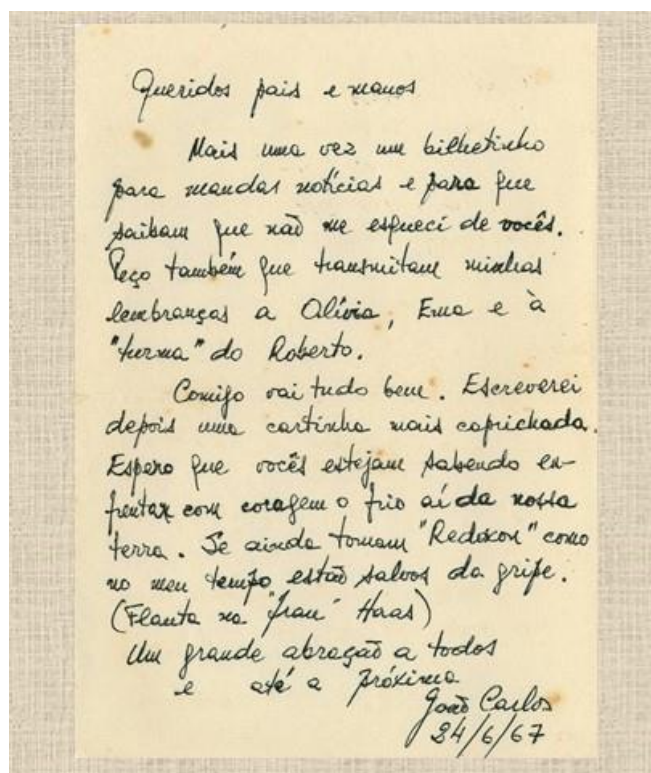 Queridos pais e manos
Mais uma vez um bilhetinho
para mandar notícias e para que
saibam que não me esqueci de vocês.
Peço também que transmitam minhas
lembranças a Alívia, Ema e à
"turma" do Roberto.
Comigo vai tudo bem. Escreverei
depois uma cartinha mais caprichada.
Espero que vocês estejam sabendo en-
frentar com coragem o frio aí da nossa
terra. Se ainda tomam "Redoxon" como
no meu tempo estão salvos da gripe.
(Flauta na "frau" Haas)
Um grande abração a todos
e até a próxima
João Carlos
24/6/67